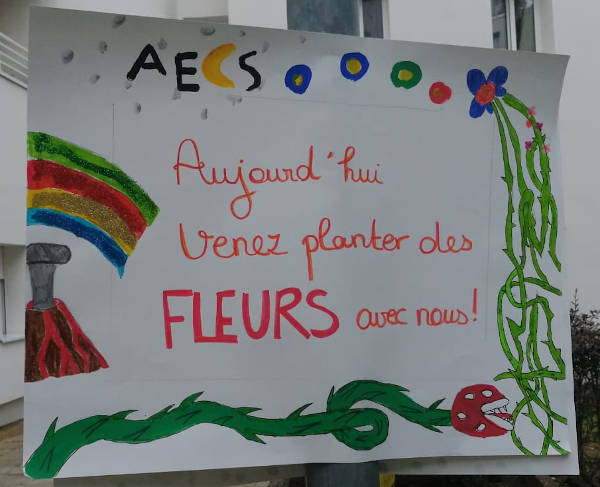 AECS
Aujourd'hui
Venez planter des
FLEURS avec nous!